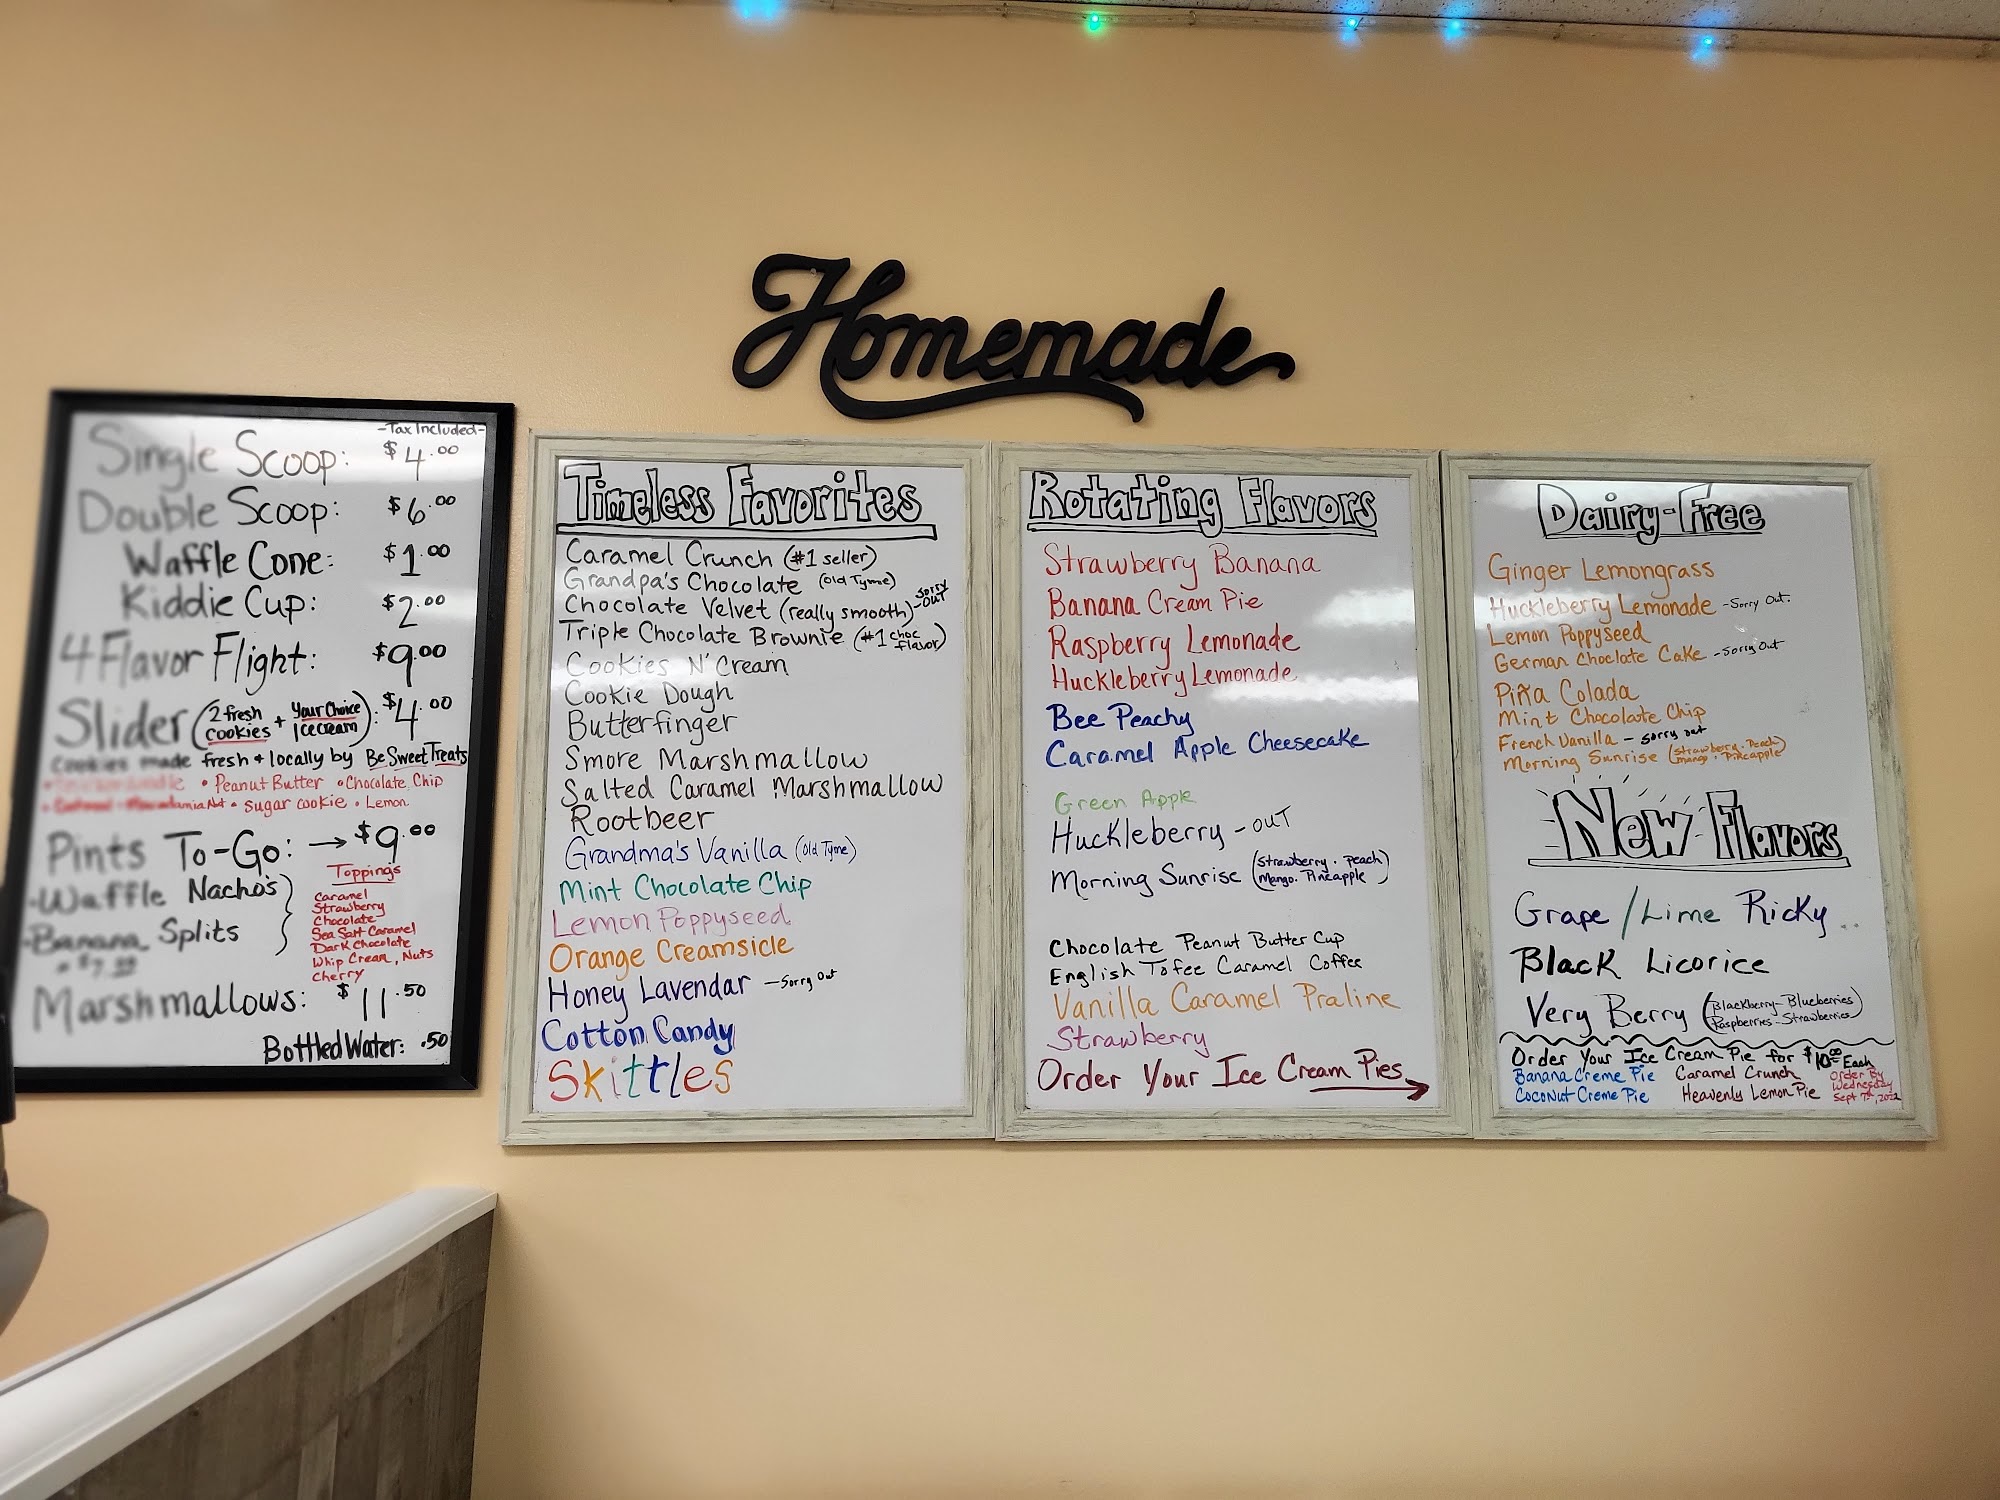 Homemade
-Tax Included-
Single Scoop: $4.00
Double Scoop: $6.00
Waffle Cone: $1.00
Kiddie Cup: $2.00
4 Flavor Flight: $9.00
Slider (2 fresh cookies + Your Choice Icecream): $4.00
Cookies made fresh + locally by Be Sweet Treats
• Peanut Butter • Chocolate Chip
Macadamia Nut • Sugar cookie • Lemon
Pints To-Go: → $9.00
-Waffle Nacho's
-Banana Splits
Toppings
Caramel
Strawberry
Chocolate
Sea Salt Caramel
Dark Chocolate
Whip Cream, Nuts
Cherry
Marshmallows: $11.50
Bottled Water: .50
Timeless Favorites
Caramel Crunch (#1 seller)
Grandpa's Chocolate (Old Tyme)
Chocolate Velvet (really smooth) -Sorry OUT
Triple Chocolate Brownie (#1 choc Flavor)
Cookies N' Cream
Cookie Dough
Butterfinger
Smore Marshmallow
Salted Caramel Marshmallow
Rootbeer
Grandma's Vanilla (Old Tyme)
Mint Chocolate Chip
Lemon Poppyseed
Orange Creamsicle
Honey Lavendar -Sorry Out
Cotton Candy
Skittles
Rotating Flavors
Strawberry Banana
Banana Cream Pie
Raspberry Lemonade
Huckleberry Lemonade
Bee Peachy
Caramel Apple Cheesecake
Green Apple
Huckleberry - OUT
Morning Sunrise (Strawberry · Peach Mango · Pineapple)
Chocolate Peanut Butter Cup
English Tofee Caramel Coffee
Vanilla Caramel Praline
Strawberry
Order Your Ice Cream Pies →
Dairy-Free
Ginger Lemongrass
Huckleberry Lemonade -Sorry Out.
Lemon Poppyseed
German Choclate Cake -Sorry Out
Piña Colada
Mint Chocolate Chip
French Vanilla - Sorry out
Morning Sunrise (Strawberry · Peach Mango · Pineapple)
New Flavors
Grape / Lime Ricky
Black Licorice
Very Berry (Blackberry - Blueberries Raspberries - Strawberries)
Order Your Ice Cream Pie for $10.00 Each
Banana Creme Pie Caramel Crunch
Coconut Creme Pie Heavenly Lemon Pie
Order By
Wednesday
Sept 7th, 2022